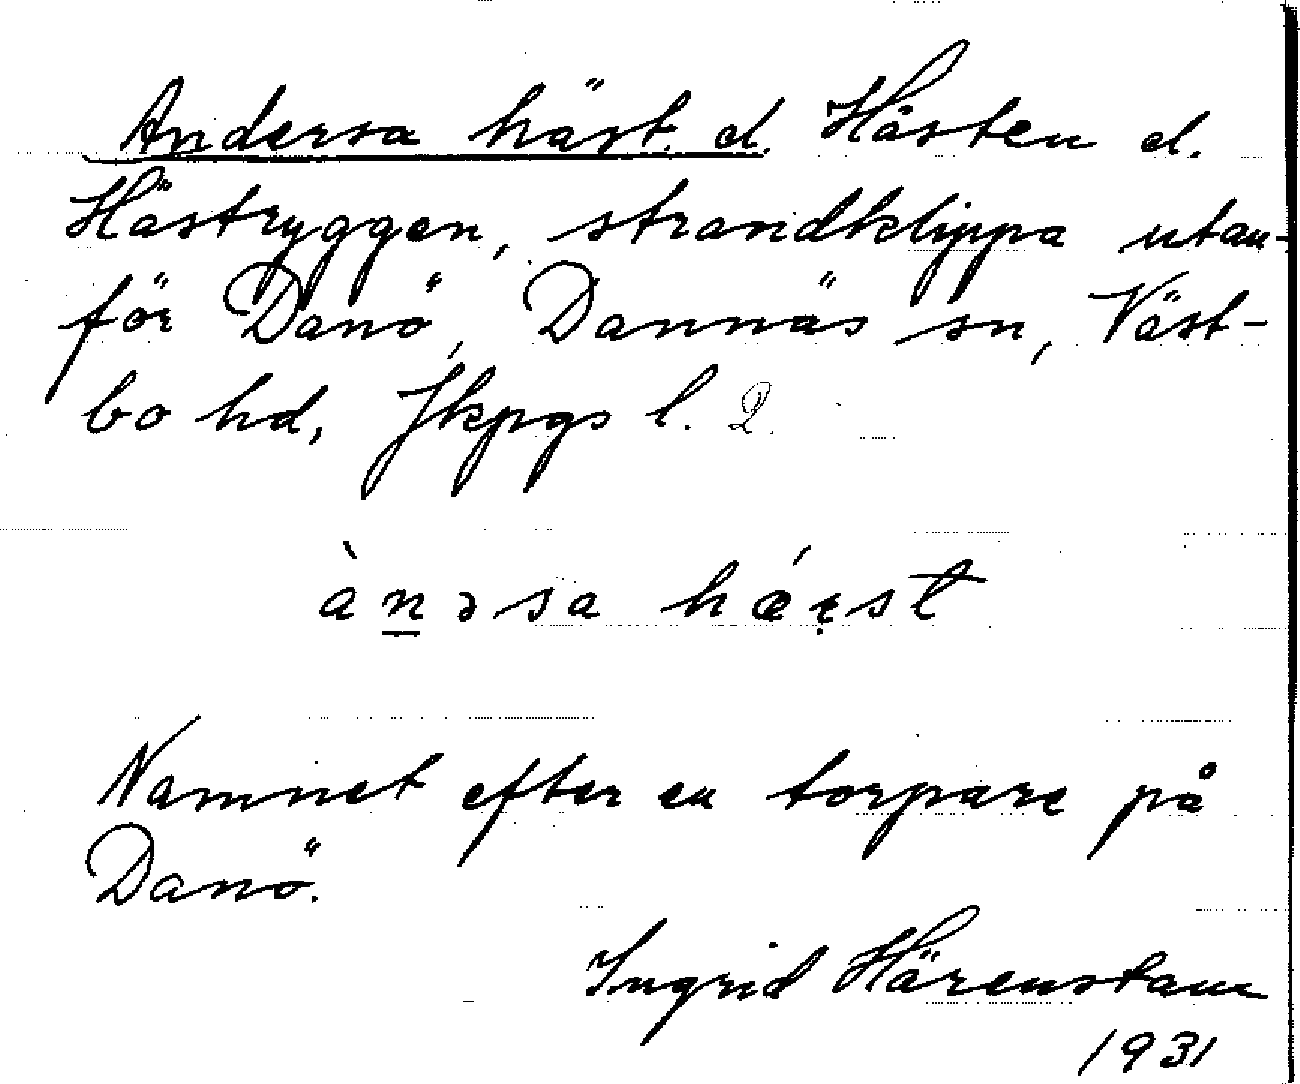 Andersa häst. d. Hästen d.
Hästryggen, strandklippa utan-
för Danö, Dannäs sn, Väst-
bo hd, Jkpgs l. 2.
ànəsa hǽɛ̣st
Namnet efter en torpare på
Danö.
Ingrid Härenstam
1931